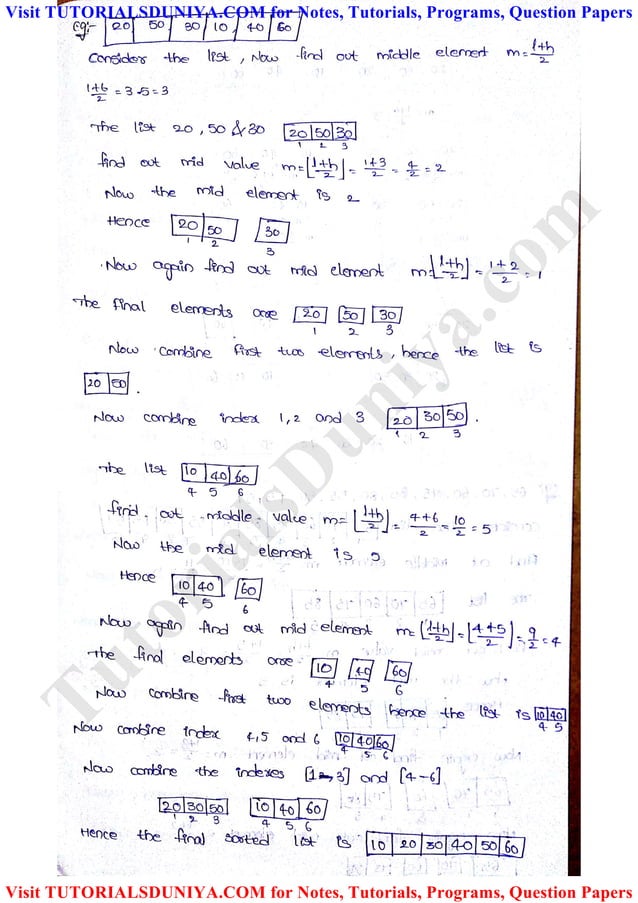 Visit TUTORIALSDUNIYA.COM for Notes, Tutorials, Programs, Question Papers
Eg:- 20 50 30 10, 40 60
Consider the list, Now find out middle element m=l+h/2
1+6/2 = 3.5 = 3
The list 20, 50 & 30 20 50 30
1 2 3
find out mid value m=⌊l+h/2⌋ = 1+3/2 = 4/2 = 2
Now the mid element is 2
Hence 20 50 30
1 2 3
Now again find out mid element m=⌊l+h/2⌋ = 1+2/2 = 1
The final elements are 20 50 30
1 2 3
Now combine first two elements, hence the list is
20 50.
Now combine index 1,2 and 3 20 30 50.
1 2 3
The list 10 40 60
4 5 6
find out middle value m=⌊l+h/2⌋ = 4+6/2 = 10/2 = 5
Now the mid element is 5
Hence 10 40 60
4 5 6
Now again find out mid element m=⌊l+h/2⌋ = ⌊4+5/2⌋ = 9/2 = 4
The final elements are 10 40 60
4 5 6
Now combine first two elements hence the list is 10 40
4 5
Now combine index 4,5 and 6 10 40 60
4 5 6
Now combine the indexes [1-3] and [4-6]
20 30 50 10 40 60
1 2 3 4 5, 6
Hence the final sorted list is 10 20 30 40 50 60
TutorialsDuniya.com
Visit TUTORIALSDUNIYA.COM for Notes, Tutorials, Programs, Question Papers